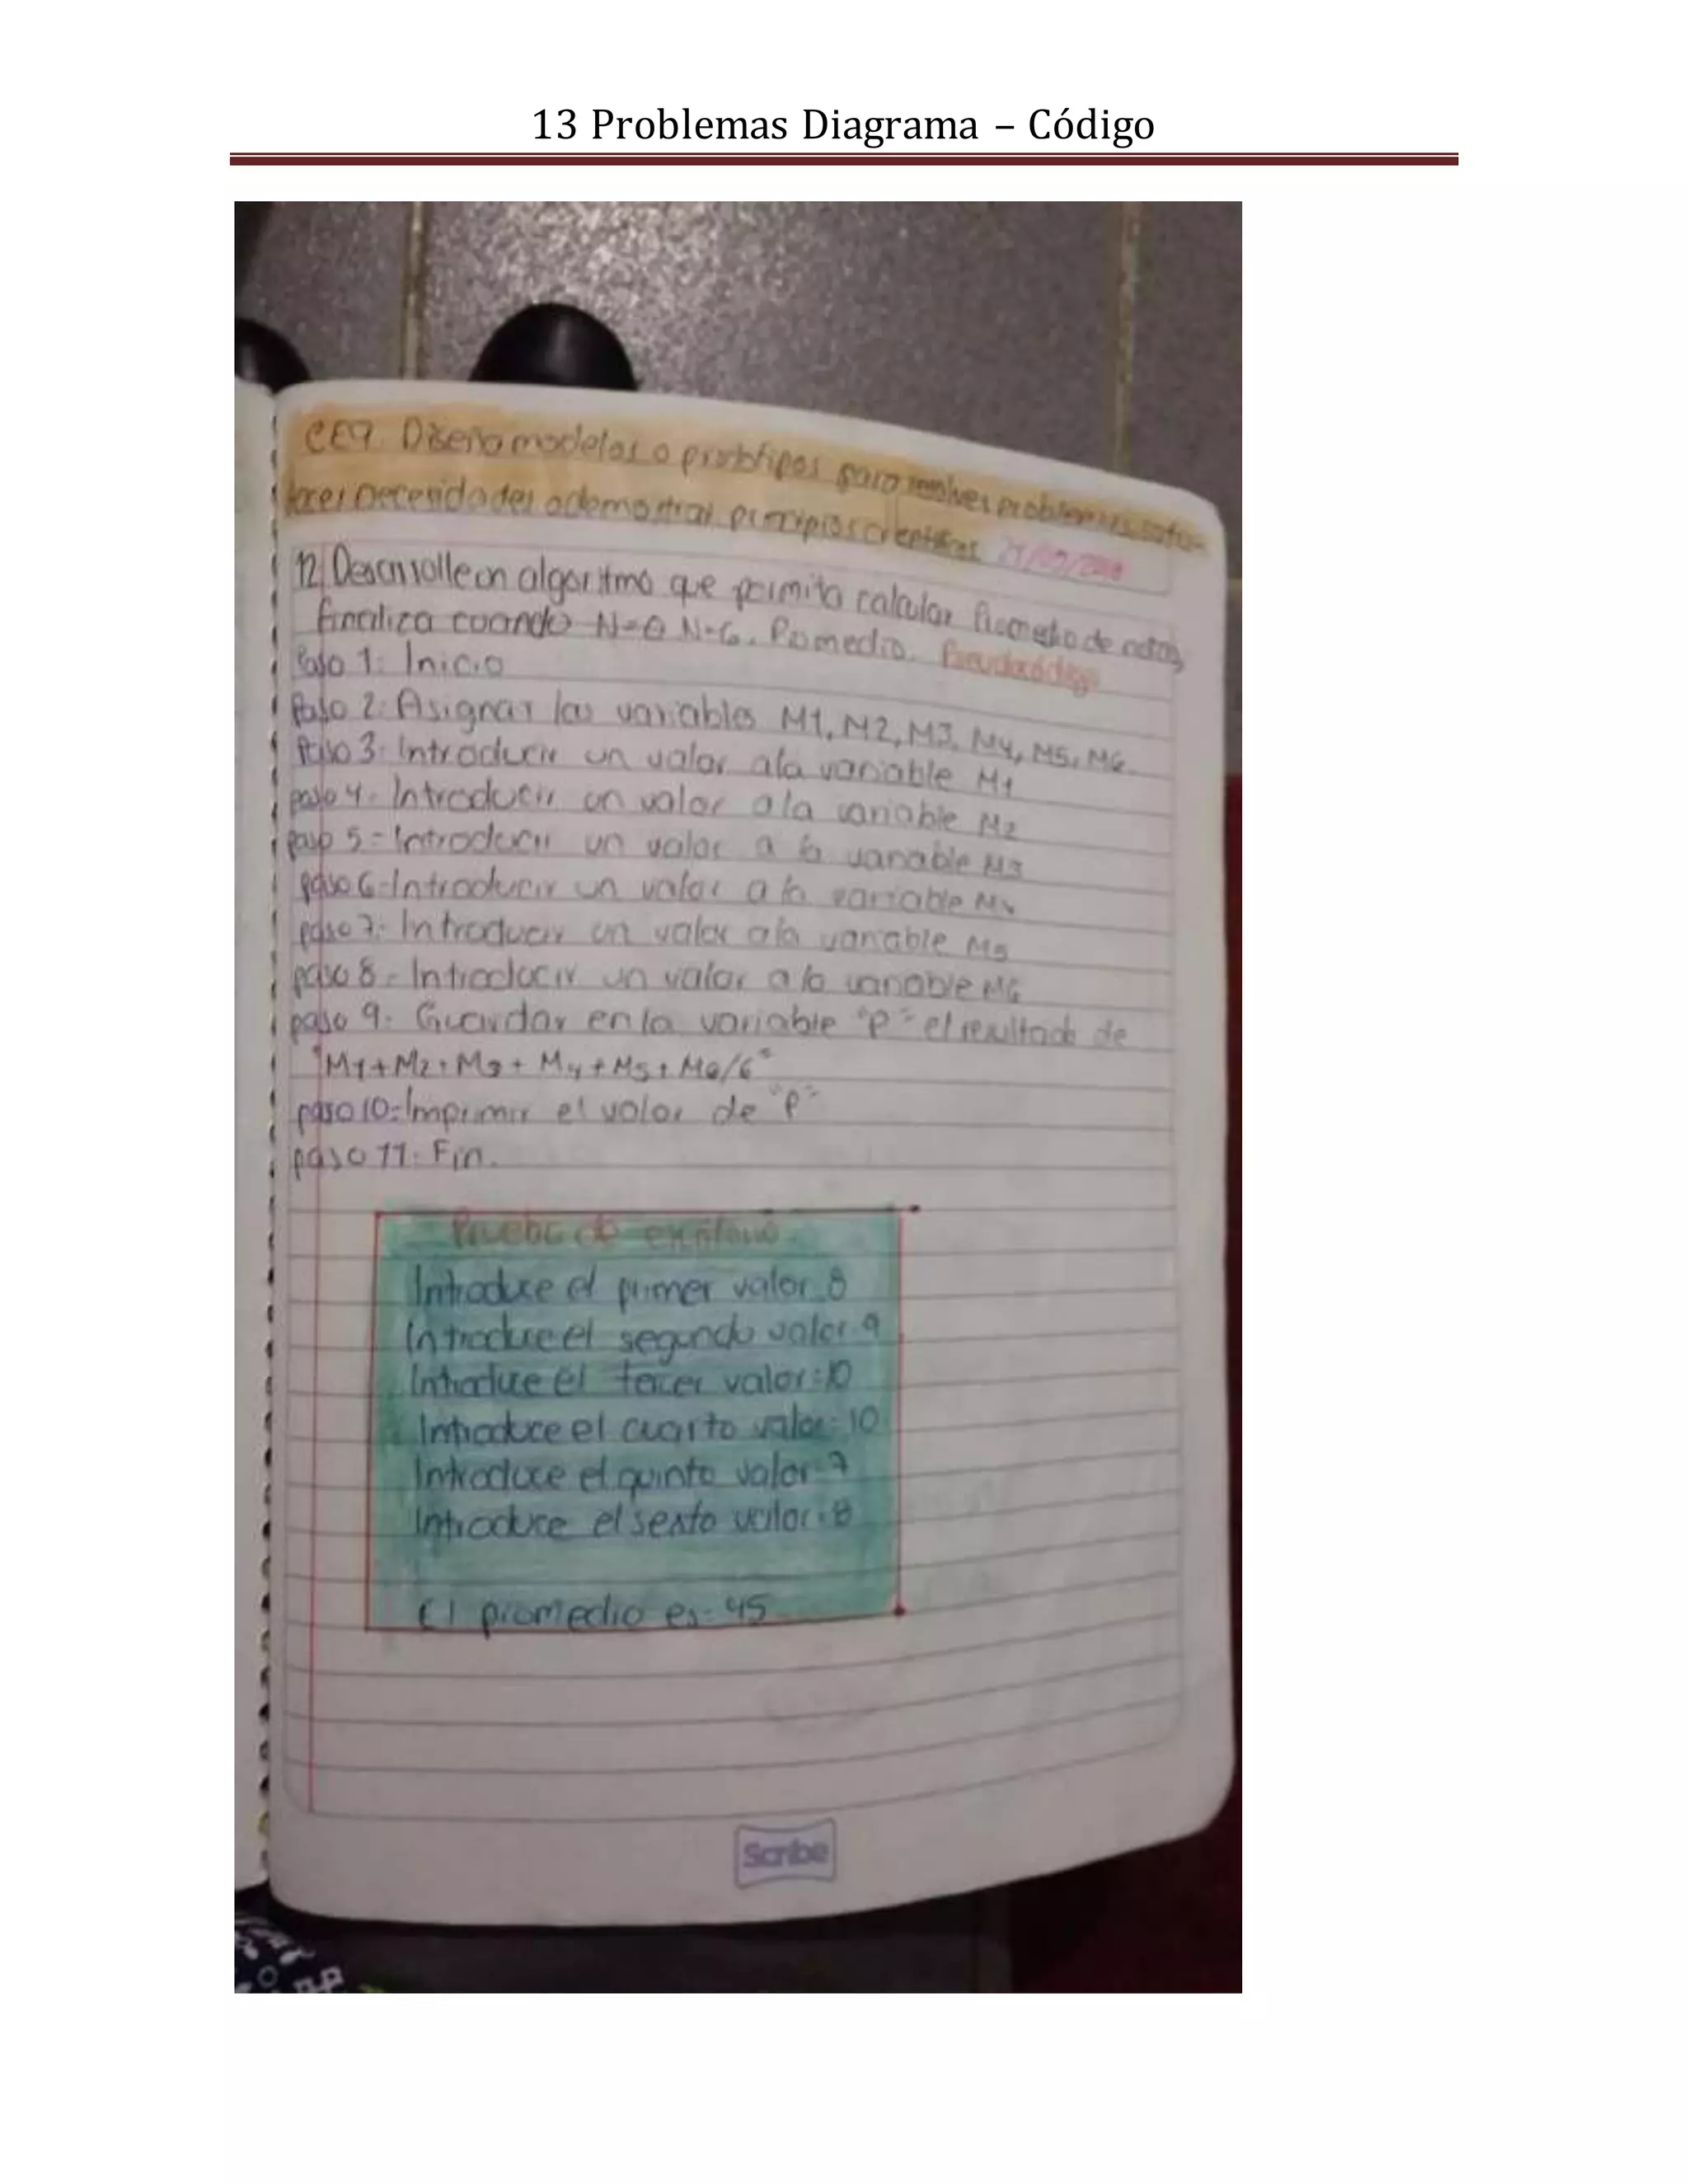 13 Problemas Diagrama – Código
CE9. Diseña modelos o prototipos para resolver problemas, satis-
facer necesidades o demostrar principios científicos
12. Desarrolle un algoritmo que permita calcular Promedio de notas,
finaliza cuando N=0 N=6. Promedio. Pseudocódigo
Paso 1: Inicio
Paso 2: Asignar las variables M1, M2, M3, M4, M5, M6.
Paso 3: Introducir un valor a la variable M1
paso 4- Introducir un valor a la variable M2
paso 5- Introducir un valor a la variable M3
paso 6- Introducir un valor a la variable M4
paso 7- Introducir un valor a la variable M5
paso 8- Introducir un valor a la variable M6
paso 9- Guardar en la variable "P" el resultado de
"M1+M2+M3+M4+M5+M6/6"
paso 10- Imprimir el valor de "P"
paso 11- Fin.
Prueba de
Introduce el primer valor: 8
Introduce el segundo valor: 9
Introduce el tercer valor: 10
Introduce el cuarto valor: 10
Introduce el quinto valor: 7
Introduce el sexto valor: 8
El promedio es: 45
Scribe